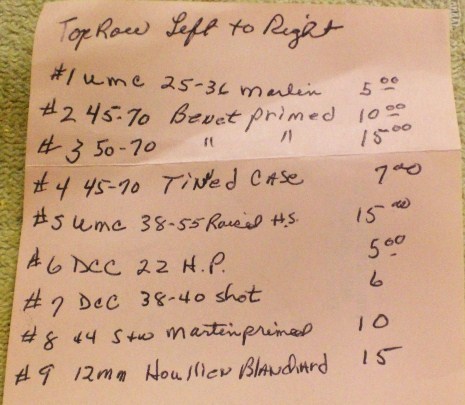 Top Row Left to Right
#1 UMC 25-36 Marlin 5.00
#2 45-70 Benet primed 10.00
#3 50-70 " " 15.00
#4 45-70 Tined Case 7.00
#5 UMC 38-55 Raised H.S. 15.00
#6 DCC 22 H.P. 5.00
#7 DCC 38-40 shot 6
#8 44 S+W Martin primed 10
#9 12mm Houllier Blanchard 15